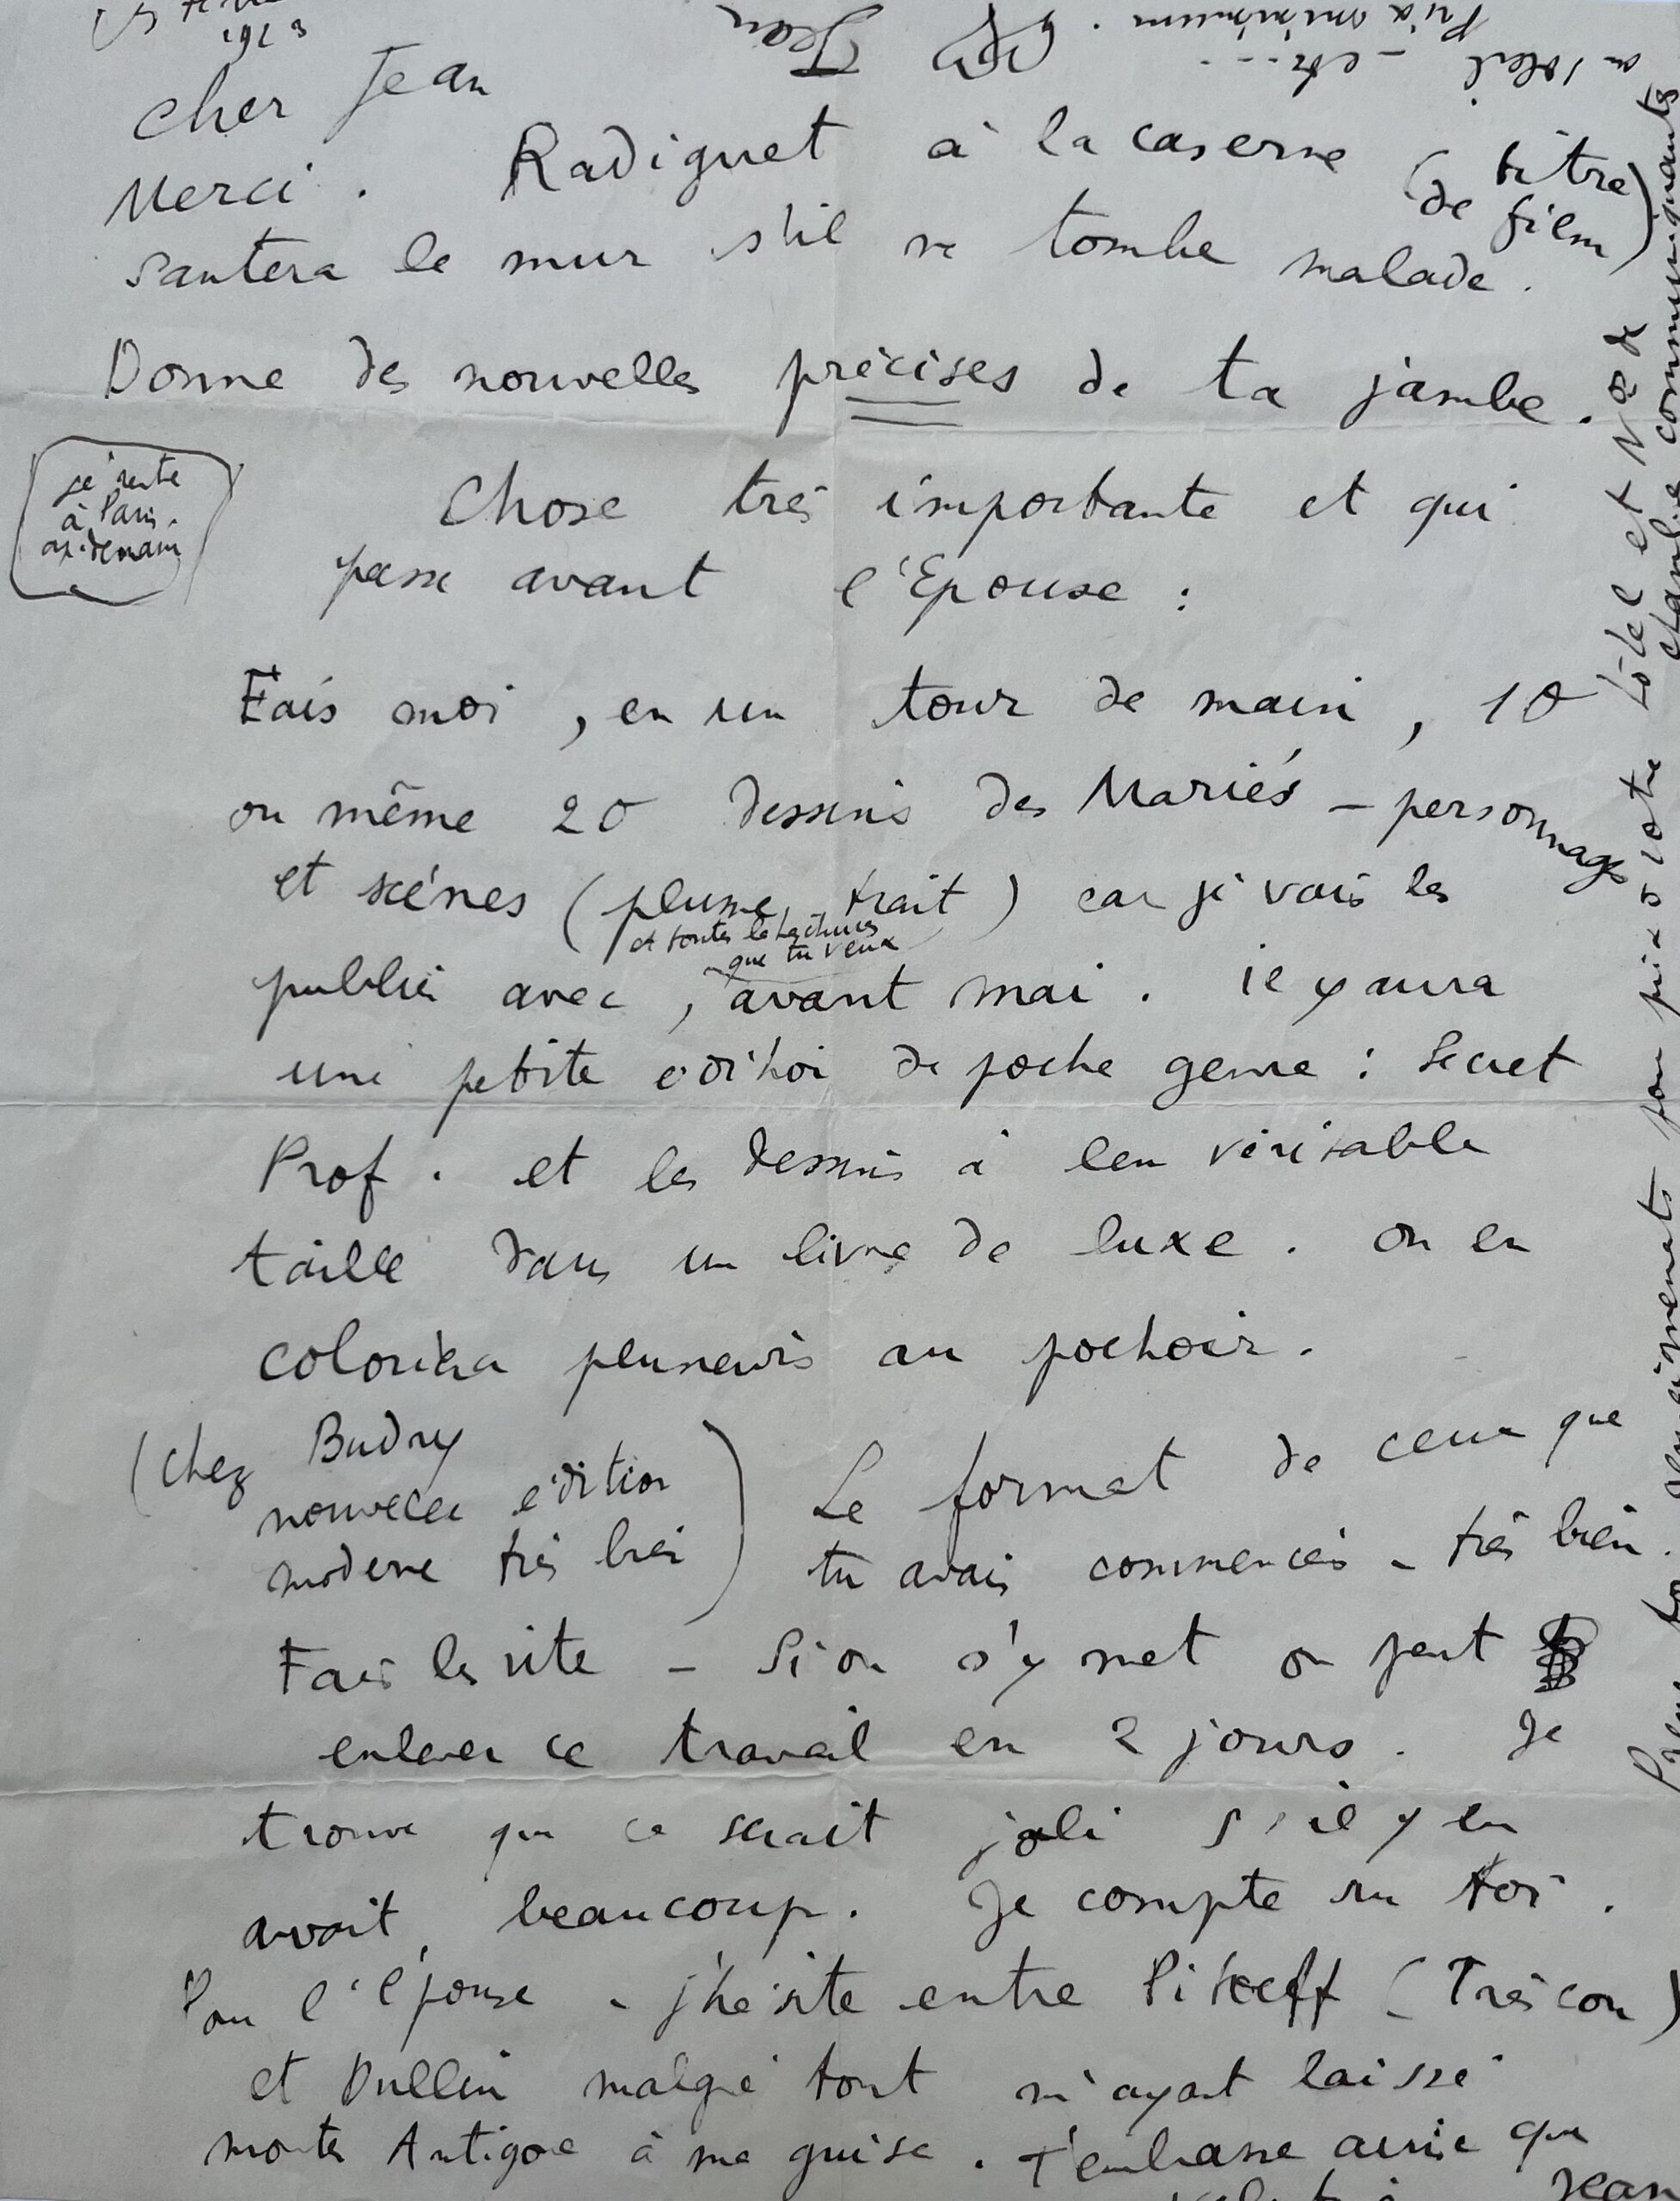 1923
Cher Jean
Merci. Radiguet à la caserne (titre
de film)
sautera le mur s'il ne tombe malade.
Donne des nouvelles précises de ta jambe.
je reste
à Paris.
Chose très importante et qui
passe avant l'Epouse :
Fais moi, en un tour de main, 10
ou même 20 dessins des Mariés – personnages
et scènes (plume, trait) car je vais les
et toutes les hachures
que tu veux
publier avec, avant mai. il y aura
une petite édition de poche genre : Secret
Prof. et les dessins à leur véritable
taille dans un livre de luxe. On en
coloriera plusieurs au pochoir.
(Chez Budry
nouvelle édition
moderne très bien)
Le format de ceux que
tu avais commencés – très bien.
Fais les vite – Si on s'y met on peut
enlever ce travail en 2 jours. Je
trouve que ce serait joli s'il y en
avait beaucoup. Je compte sur toi.
Pour l'épouse – j'hésite entre Pitoeff (Très con)
et Dullin malgré tout m'ayant laissé
monter Antigone à ma guise. T'embrasse ainsi que
Jean
renseignements pour prix à votre hôtel et No de
chambre communiquants
au soleil – etc...
Prix minimum.
Jean